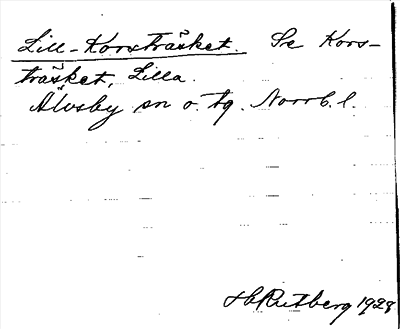 Lill-Korsträsket. Se Kors-
träsket, Lilla.
Älvsby sn o. tg. Norrb. l.
HRutberg 1928